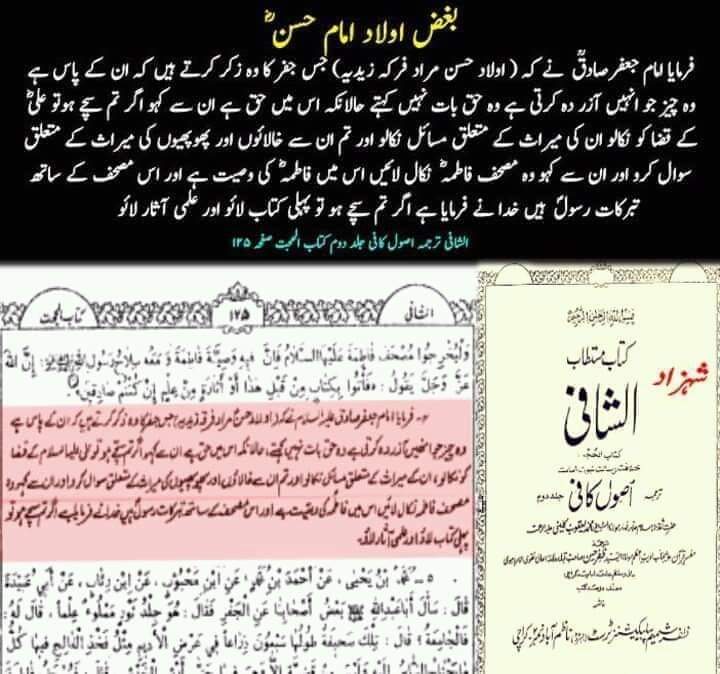 بغض اولاد امام حسنؓ
فرمایا امام جعفر صادقؒ نے کہ ( اولاد حسن مراد فرکہ زیدیہ) جس جفر کا وہ زکر کرتے ہیں کہ ان کے پاس ہے
وہ چیز جو انہیں آزر دہ کرتی ہے وہ حق بات نہیں کہتے حالانکہ اس میں حق ہے ان سے کہو اگر تم سچے ہو تو علیؓ
کے قضا کو نکالو ان کی میراث کے متعلق مسائل نکالو اور تم ان سے خالائوں اور پھوپھیوں کی میراث کے متعلق
سوال کرو اور ان سے کہو وہ مصحف فاطمہؓ نکال لائیں اس میں فاطمہؓ کی وصیت ہے اور اس مصحف کے ساتھ
تبرکات رسولؐ ہیں خدا نے فرمایا ہے اگر تم سچے ہو تو پہلی کتاب لائو اور علمی آثار لائو
الشافی ترجمہ اصول کافی جلد دوم کتاب الحجت صفحہ ۱۲۵
کتاب الحجت
۱۲۵
الشافی
وَلْيُخْرِجُوا مُصْحَفَ فَاطِمَةَ عَلَيْهَا السَّلَامُ فَاِنَّ فِيهِ وَصِيَّةَ فَاطِمَةَ وَ مَعَهُ سِلَاحَ رَسُولِ اللهِ إِنَّ اللهَ
عَزَّ وَجَلَّ يَقُولُ : «فَأْتُوا بِكِتَابٍ مِنْ قَبْلِ هَذَا أَوْ أَثَارَةٍ مِنْ عِلْمٍ إِنْ كُنْتُمْ صَادِقِينَ» .
۴- فرمایا امام جعفر صادق علیہ السلام نے کہ (اولاد حسن مراد فرقہ زیدیہ) جس جفر کا وہ ذکر کرتے ہیں کہ ان کے پاس ہے
وہ چیز جو انہیں آزردہ کرتی ہے وہ حق بات نہیں کہتے حالانکہ اس میں حق ہے ان سے کہو اگر تم سچے ہو تو علی علیہ السلام کے قضا
کو نکالو ، ان کے میراث کے متعلق مسائل نکالو اور تم ان سے خالاؤں اور پھوپھیوں کی میراث کے متعلق سوال کرو اور ان سے کہو وہ
مصحف فاطمہ نکال لائیں اس میں فاطمہ کی وصیت ہے اور اس مصحف کے ساتھ تبرکات رسول ہیں خدا نے فرمایا ہے اگر تم سچے ہو تو
پہلی کتاب لاؤ اور علمی آثار لاؤ۔
۵ - مُحَمَّدُ بْنُ يَحْيَى ، عَنْ أَحْمَدَ بْنِ مُحَمَّدٍ ، عَنِ ابْنِ مَحْبُوبٍ ، عَنِ ابْنِ رِئَابٍ ، عَنْ أَبِي عُبَيْدَةَ
قَالَ : سَأَلَ أَبَا عَبْدِ اللهِ بَعْضُ أَصْحَابِنَا عَنِ الْجَفْرِ فَقَالَ : هُوَ جِلْدُ ثَوْرٍ مَمْلُوءٌ عِلْماً ، قَالَ لَهُ :
فَالْجَامِعَةُ ؟ قَالَ : تِلْكَ صَحِيفَةٌ طُولُهَا سَبْعُونَ ذِرَاعاً فِي عَرْضِ الْأَدِيمِ مِثْلُ فَخِذِ الْفَالِجِ فِيهَا كُلُّ
بسم اللہ الرحمن الرحیم
کتاب مستطاب
شہزاد
الشافی
کتاب الحجۃ
ترجمہ اصول کافی جلد دوم
ناظم آباد کراچی